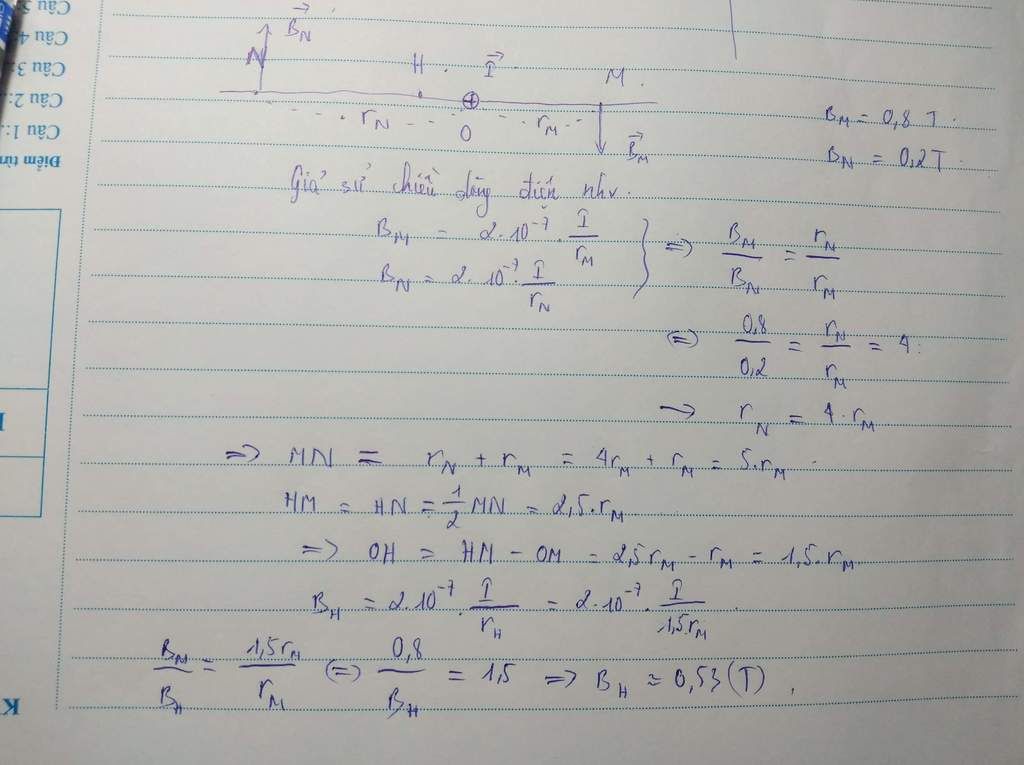 Câu 5:
Câu 4:
Câu 3:
Câu 2:
Câu 1:
Điểm từn
B⃗_N
N H I⃗ M
r_N O r_M B⃗_M
B_M = 0,8 T.
B_N = 0,2T.
Giả sử chiều dòng điện như.
B_M = 2.10⁻⁷. I/r_M
B_N = 2.10⁻⁷. I/r_N
} => B_M/B_N = r_N/r_M
<=> 0,8/0,2 = r_N/r_M = 4.
→ r_N = 4.r_M
=> MN = r_N + r_M = 4r_M + r_M = 5.r_M
HM = HN = 1/2 MN = 2,5.r_M
=> OH = HM - OM = 2,5r_M - r_M = 1,5.r_M
B_H = 2.10⁻⁷. I/r_H = 2.10⁻⁷. I/1,5r_M
B_M/B_H = 1,5r_M/r_M <=> 0,8/B_H = 1,5 => B_H ≈ 0,53(T).
K